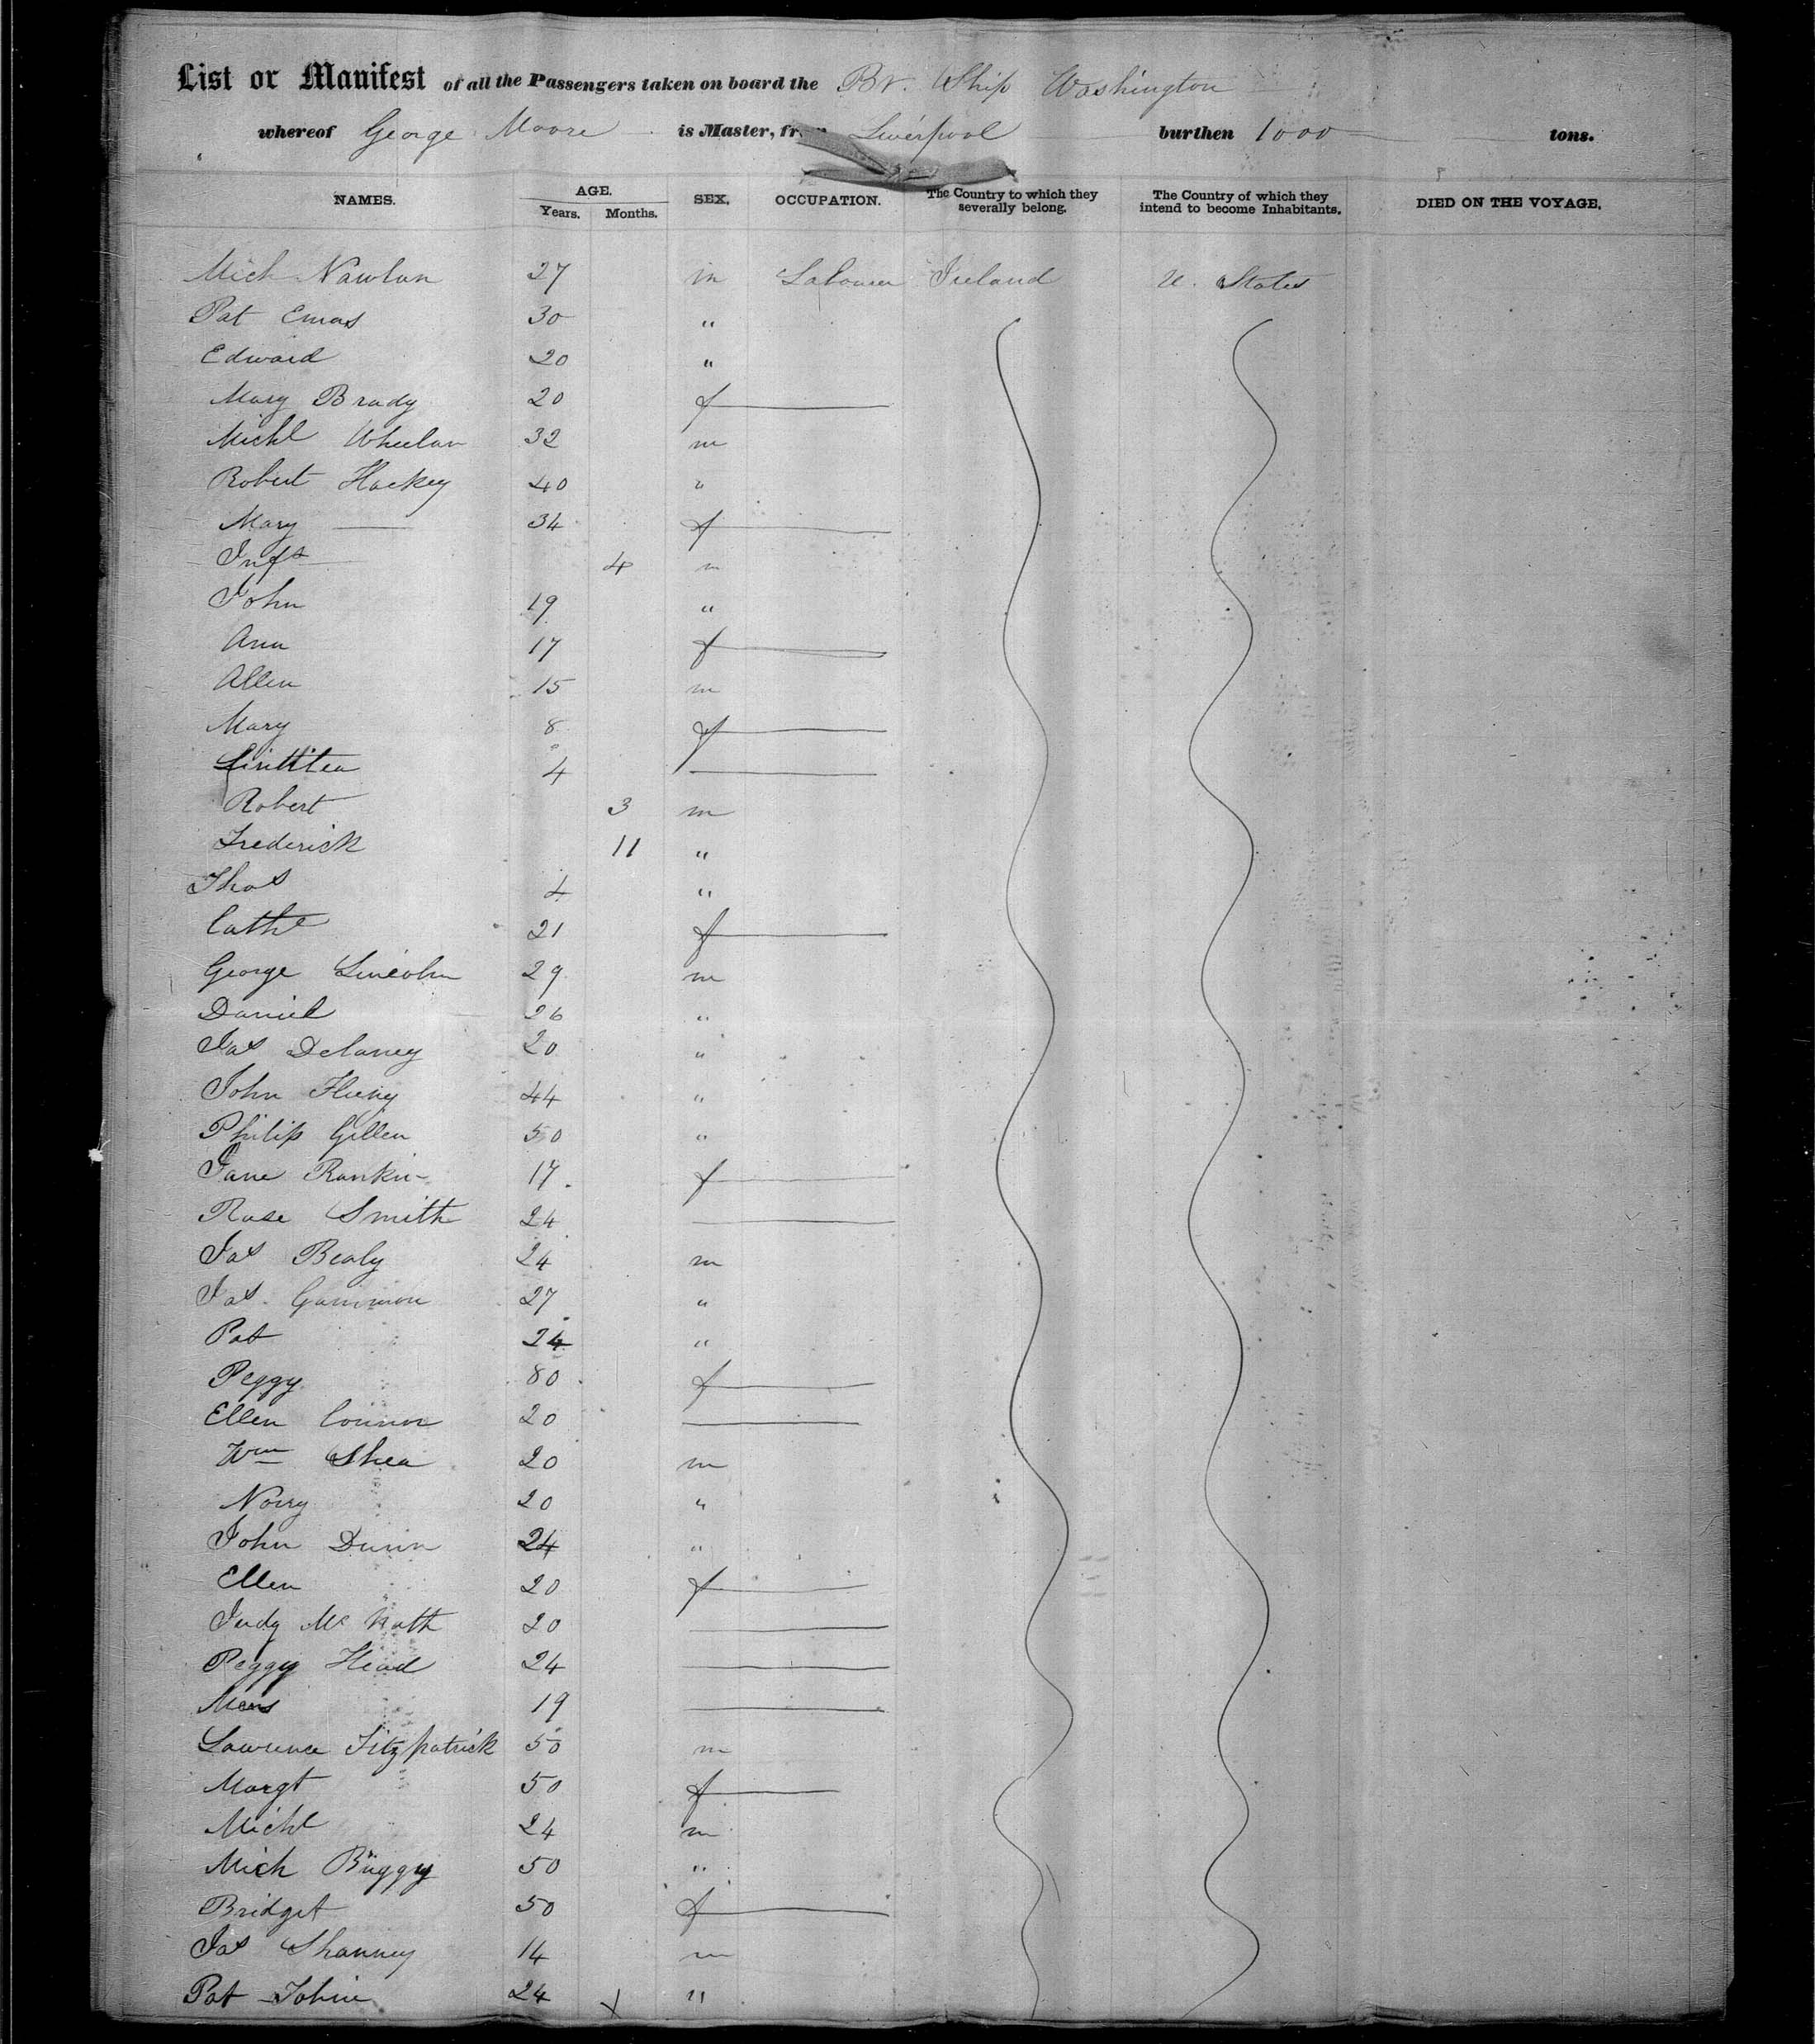 List or Manifest of all the Passengers taken on board the Br. Ship Washington
whereof George Moore is Master, from Liverpool burthen 1000 tons.
NAMES. AGE. Years. Months. SEX. OCCUPATION. The Country to which they severally belong. The Country of which they intend to become Inhabitants. DIED ON THE VOYAGE.
Mich Nawlan 27 m Labourer Ireland U. States
Pat 30 "
Edward 20 "
Mary Brady 20 f
Michl Wheelan 32 m
Robert Hackey 40 "
Mary 34 f
Inft 4 m
John 19 "
Ann 17 f
Allen 15 m
Mary 8 f
4
Robert 3 m
Frederick 11 "
Thos 4 "
Cathe 21 f
George Lincoln 29 m
Daniel 26 "
Jas Delaney 20 "
John 44 "
Philip Gillen 50 "
Jane Rankin 17 f
Rose Smith 24
Jas Bealy 24 m
Jas Gammon 27 "
Pat 24 "
Peggy 80 f
Ellen Connor 20
Wm Shea 20 m
Norry 20 "
John Dunn 24 "
Ellen 20 f
Judy Mc Nath 20
Peggy Head 24
19
Lawrence Fitzpatrick 50 m
Margt 50 f
Michl 24 m
Mich Buggy 50 "
Bridget 50 f
Jas Shanney 14 m
Pat Tobin 24 x "